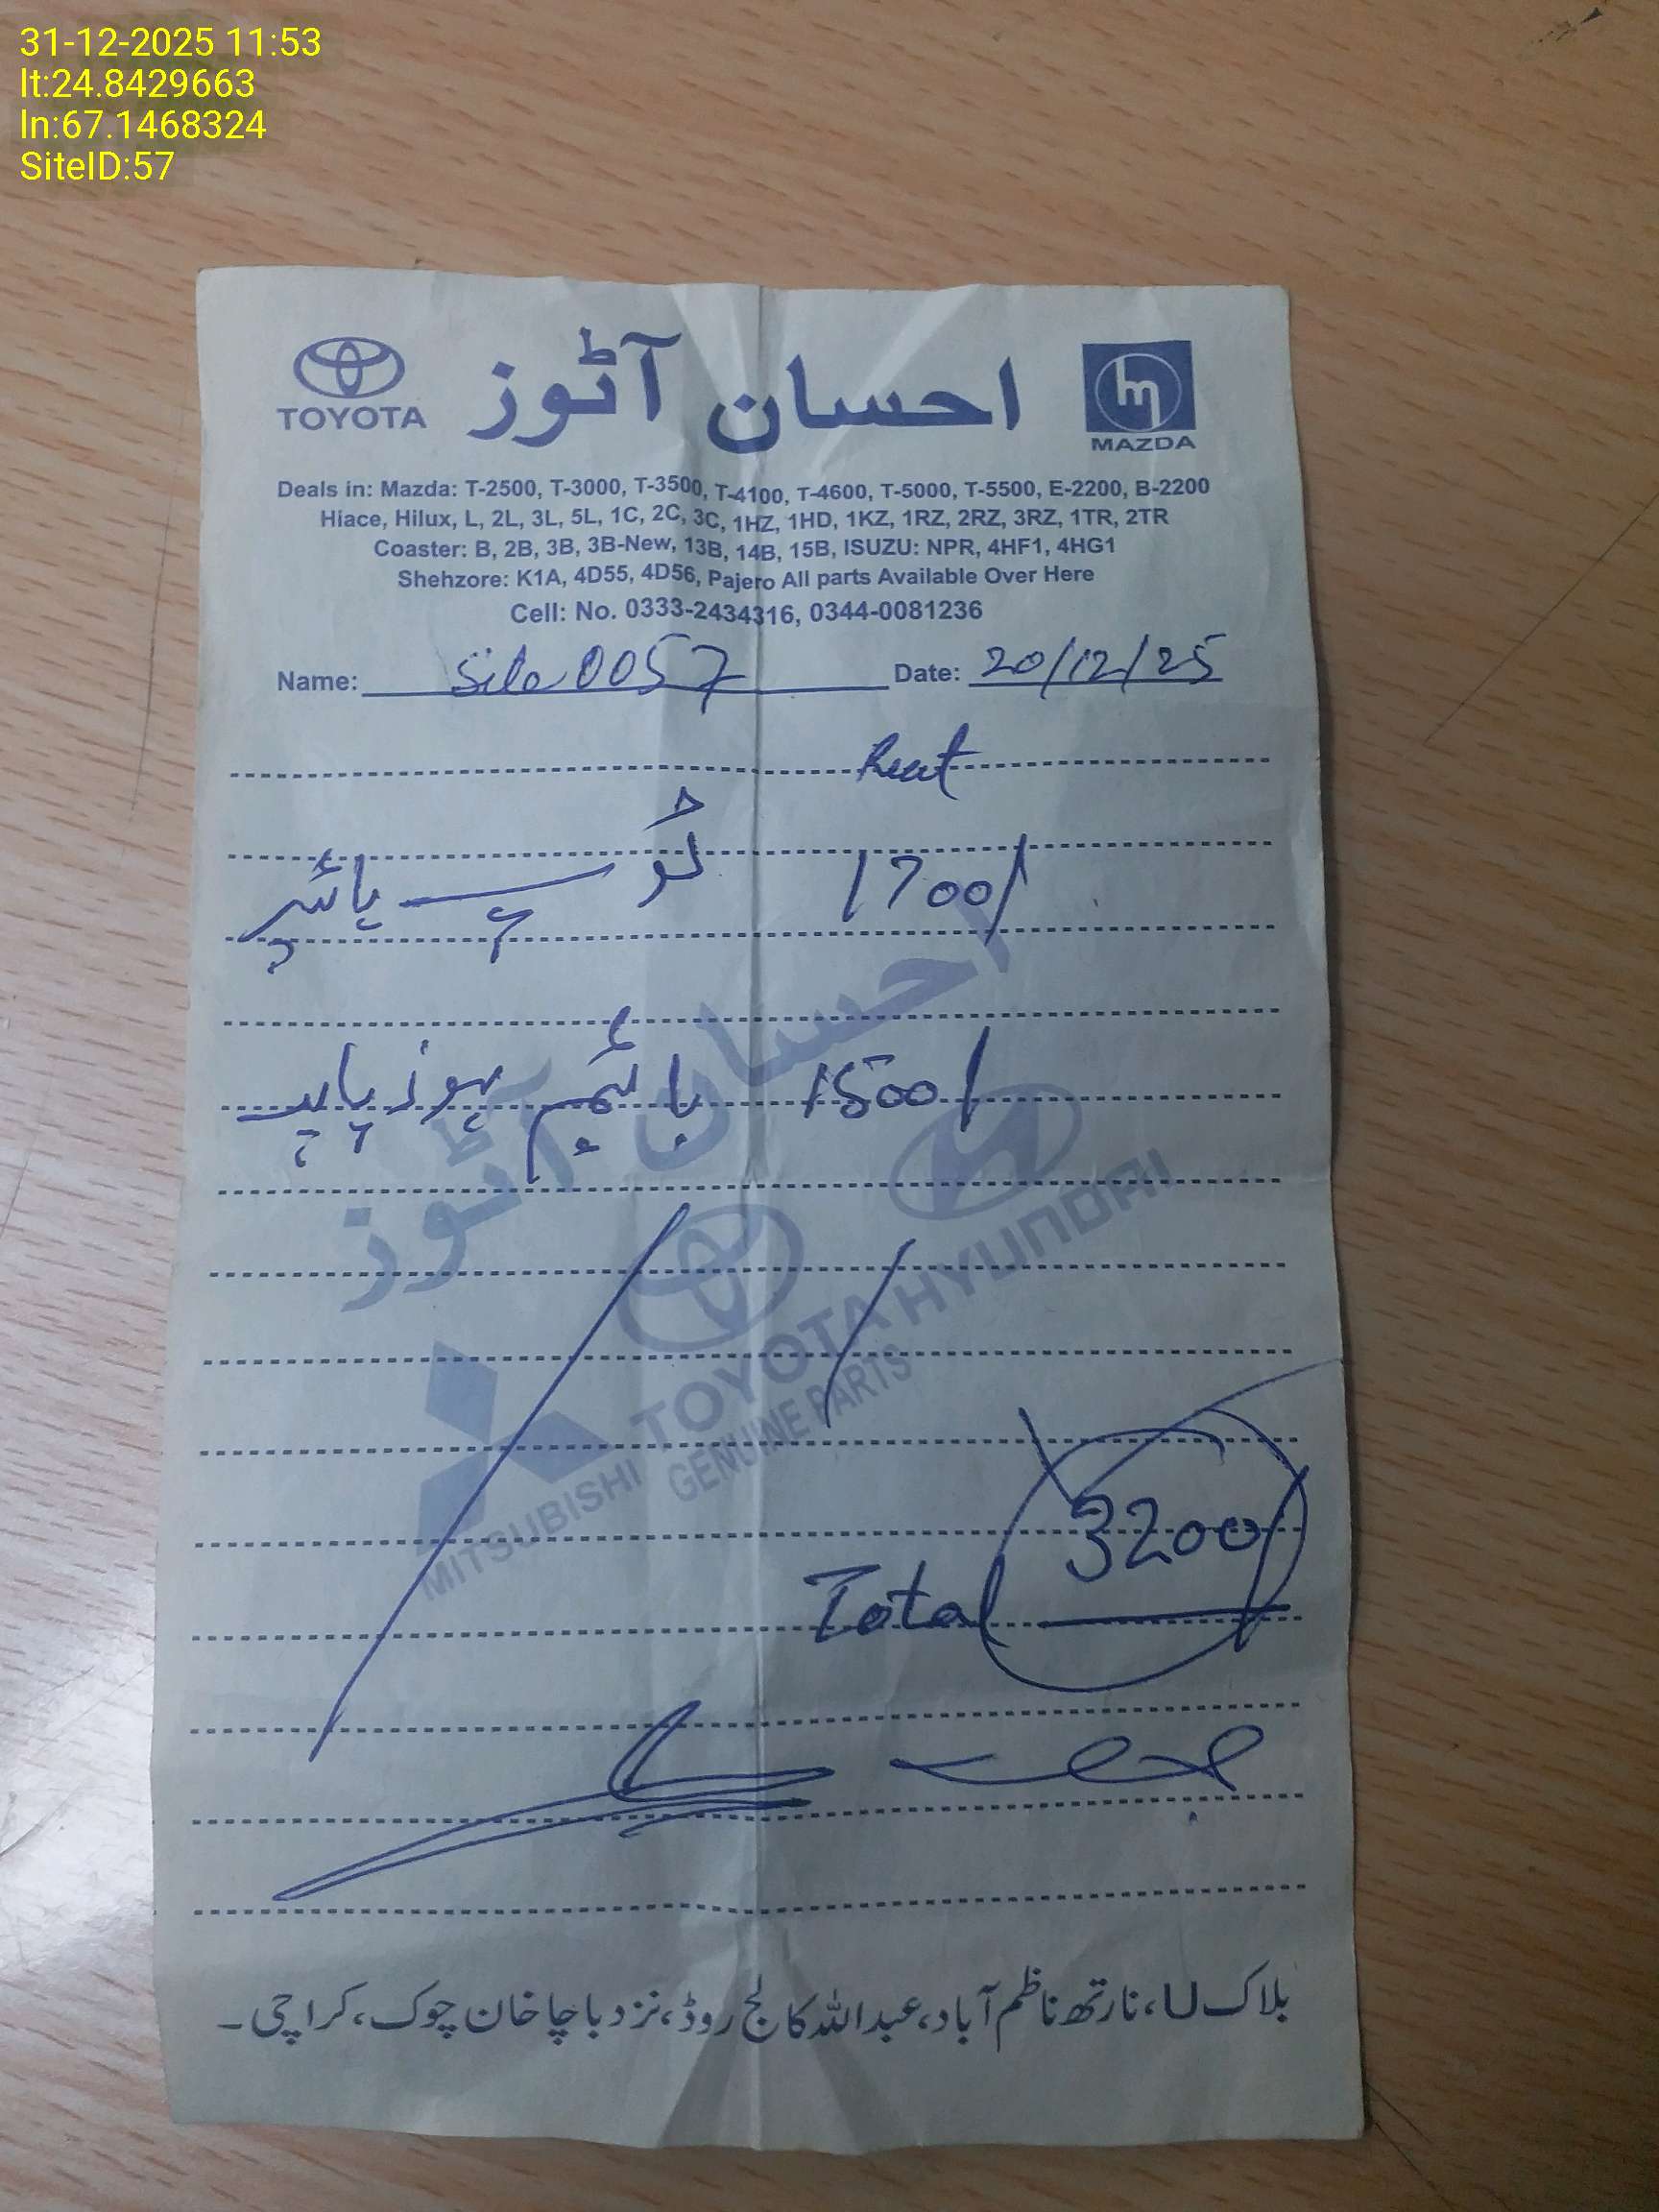 31-12-2025 11:53
lt:24.8429663
ln:67.1468324
SiteID:57
TOYOTA
احسان آٹوز
MAZDA
Deals in: Mazda: T-2500, T-3000, T-3500, T-4100, T-4600, T-5000, T-5500, E-2200, B-2200
Hiace, Hilux, L, 2L, 3L, 5L, 1C, 2C, 3C, 1HZ, 1HD, 1KZ, 1RZ, 2RZ, 3RZ, 1TR, 2TR
Coaster: B, 2B, 3B, 3B-New, 13B, 14B, 15B, ISUZU: NPR, 4HF1, 4HG1
Shehzore: K1A, 4D55, 4D56, Pajero All parts Available Over Here
Cell: No. 0333-2434316, 0344-0081236
Name: Site 0057 Date: 20/12/25
پائپ 1700/
ہوز پائپ 1500/
احسان آٹوز
HYUNDAI
TOYOTA
GENUINE PARTS
MITSUBISHI
3200/
Total
بلاک U، نارتھ ناظم آباد، عبداللہ کالج روڈ، نزد باچا خان چوک، کراچی۔